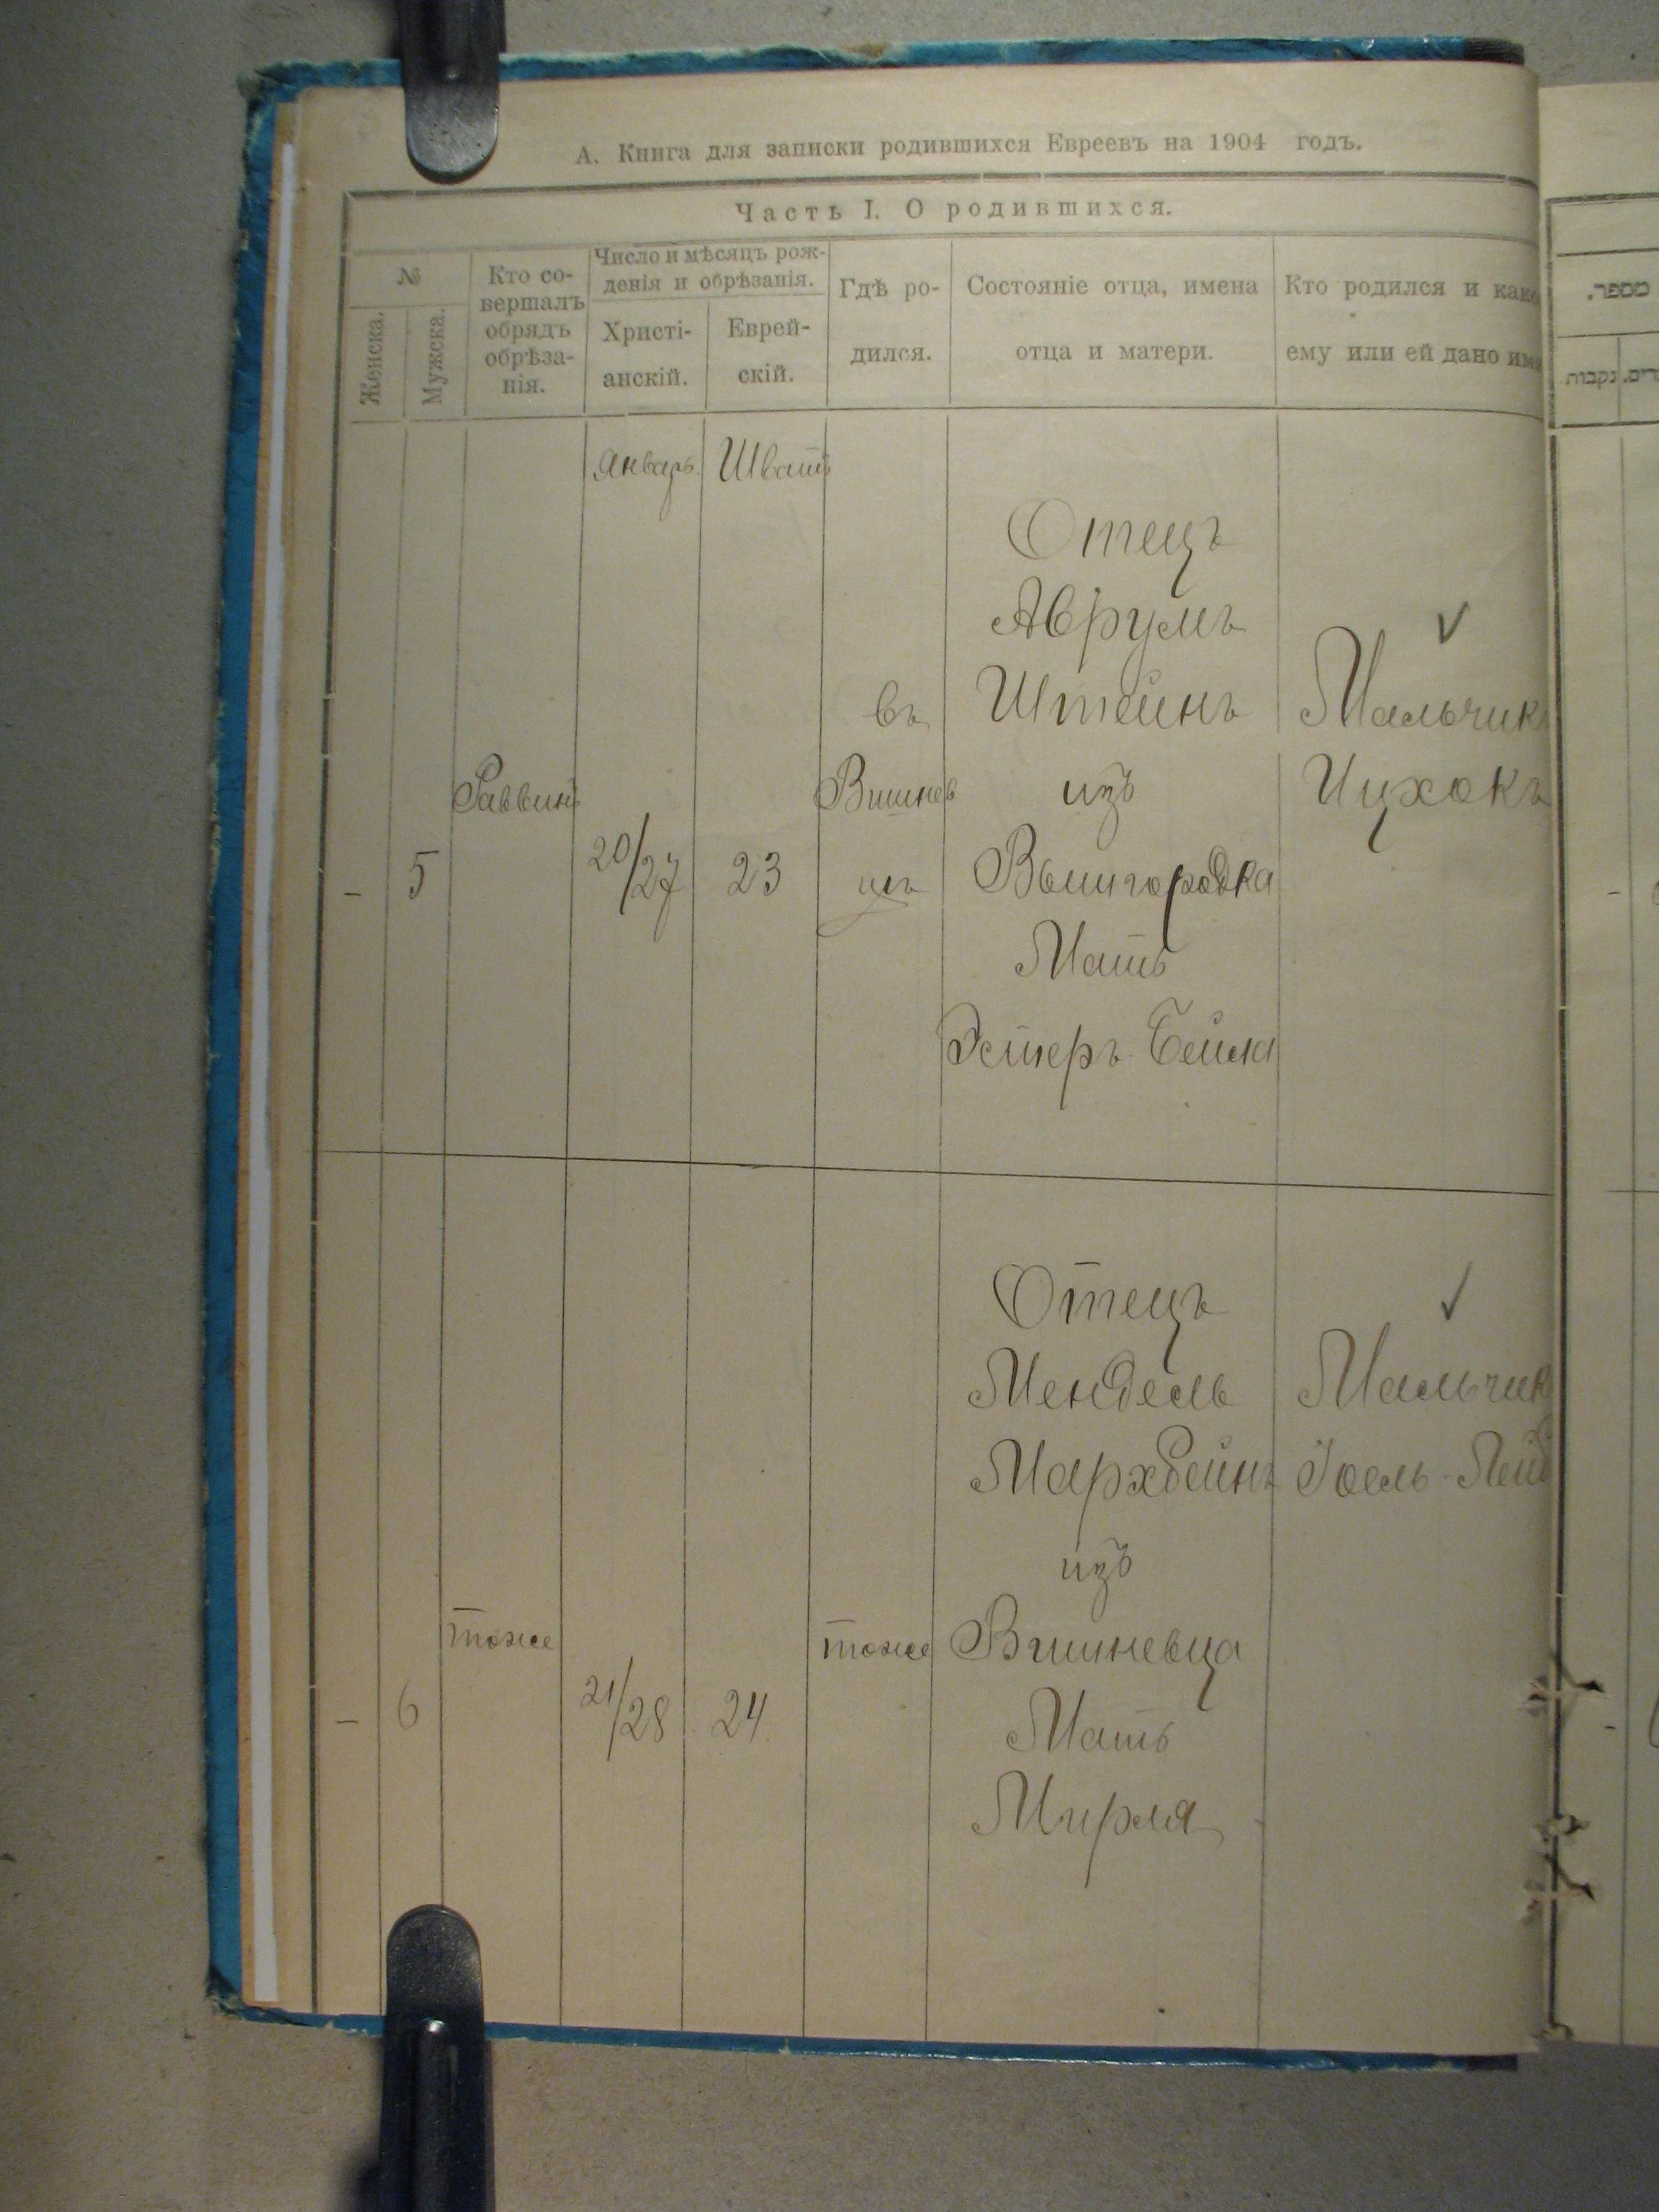 А. Книга для записки родившихся Евреевъ на 1904 годъ.
Часть I. О родившихся.
№
Женска.
Мужска.
Кто со-
вершалъ
обрядъ
обрѣза-
нія.
Число и мѣсяцъ рож-
денія и обрѣзанія.
Христі-
анскій.
Еврей-
скій.
Гдѣ ро-
дился.
Состояніе отца, имена
отца и матери.
Кто родился и како
ему или ей дано имя
מספר.
נקבות
Январь Шватъ
- 5
Раввинъ
20/27
23
въ
Вишнев
цѣ
Отецъ
Аврумъ
Штейнъ
изъ
Вышгородка
Мать
Эстеръ-Бейла
Мальчикъ
Ицхокъ
- 6
тоже
21/28
24
тоже
Отецъ
Мендель
Мархбейнъ
изъ
Вишневца
Мать
Мирля
Мальчик
Іоель-Лейб